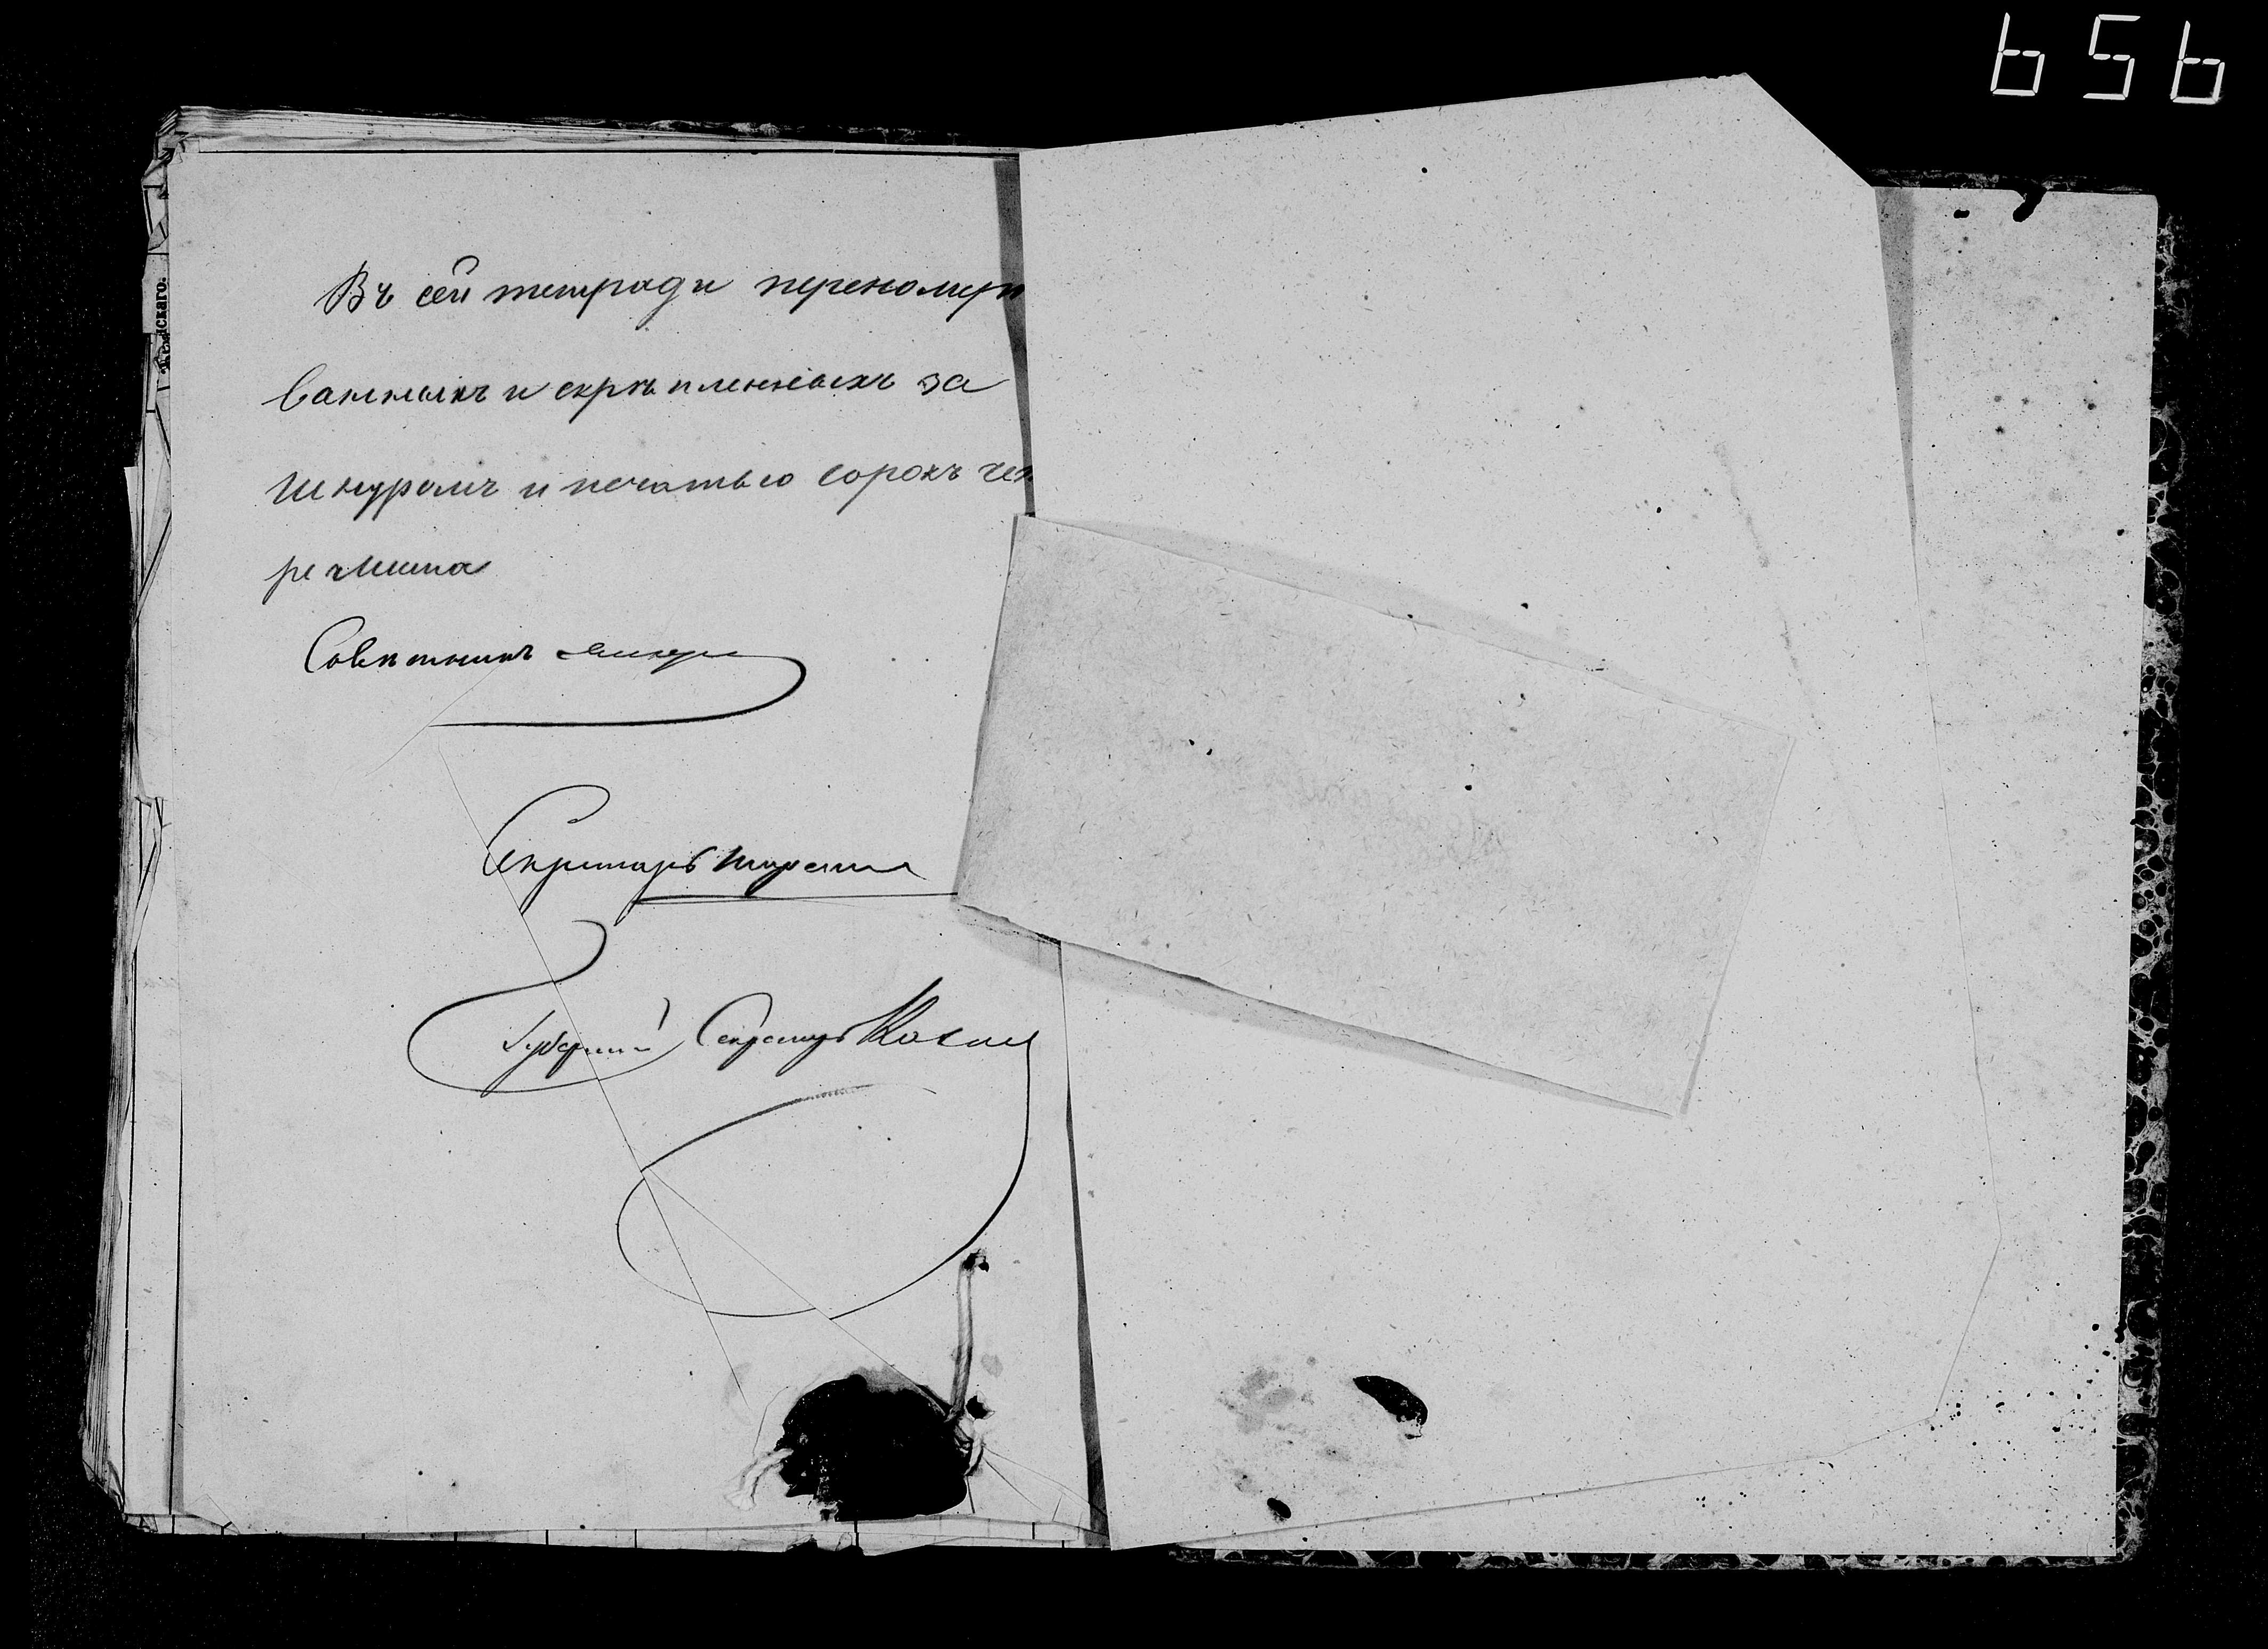 656
Въ сей тетради переномеро
ванныхъ и скрѣпленныхъ за
шнуромъ и печатью сорокъ чет
ре листа
Совѣтникъ
Секретарь
Губернскій Секретарь